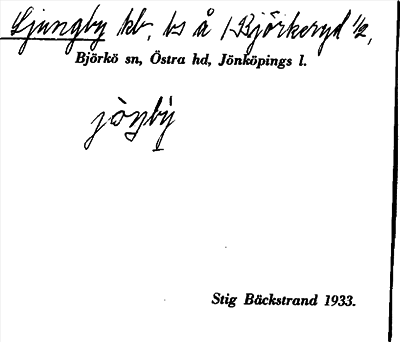 Ljungby kb, bs å /Björkeryd ½,
Björkö sn, Östra hd, Jönköpings l.
jòŋbý
Stig Bäckstrand 1933.